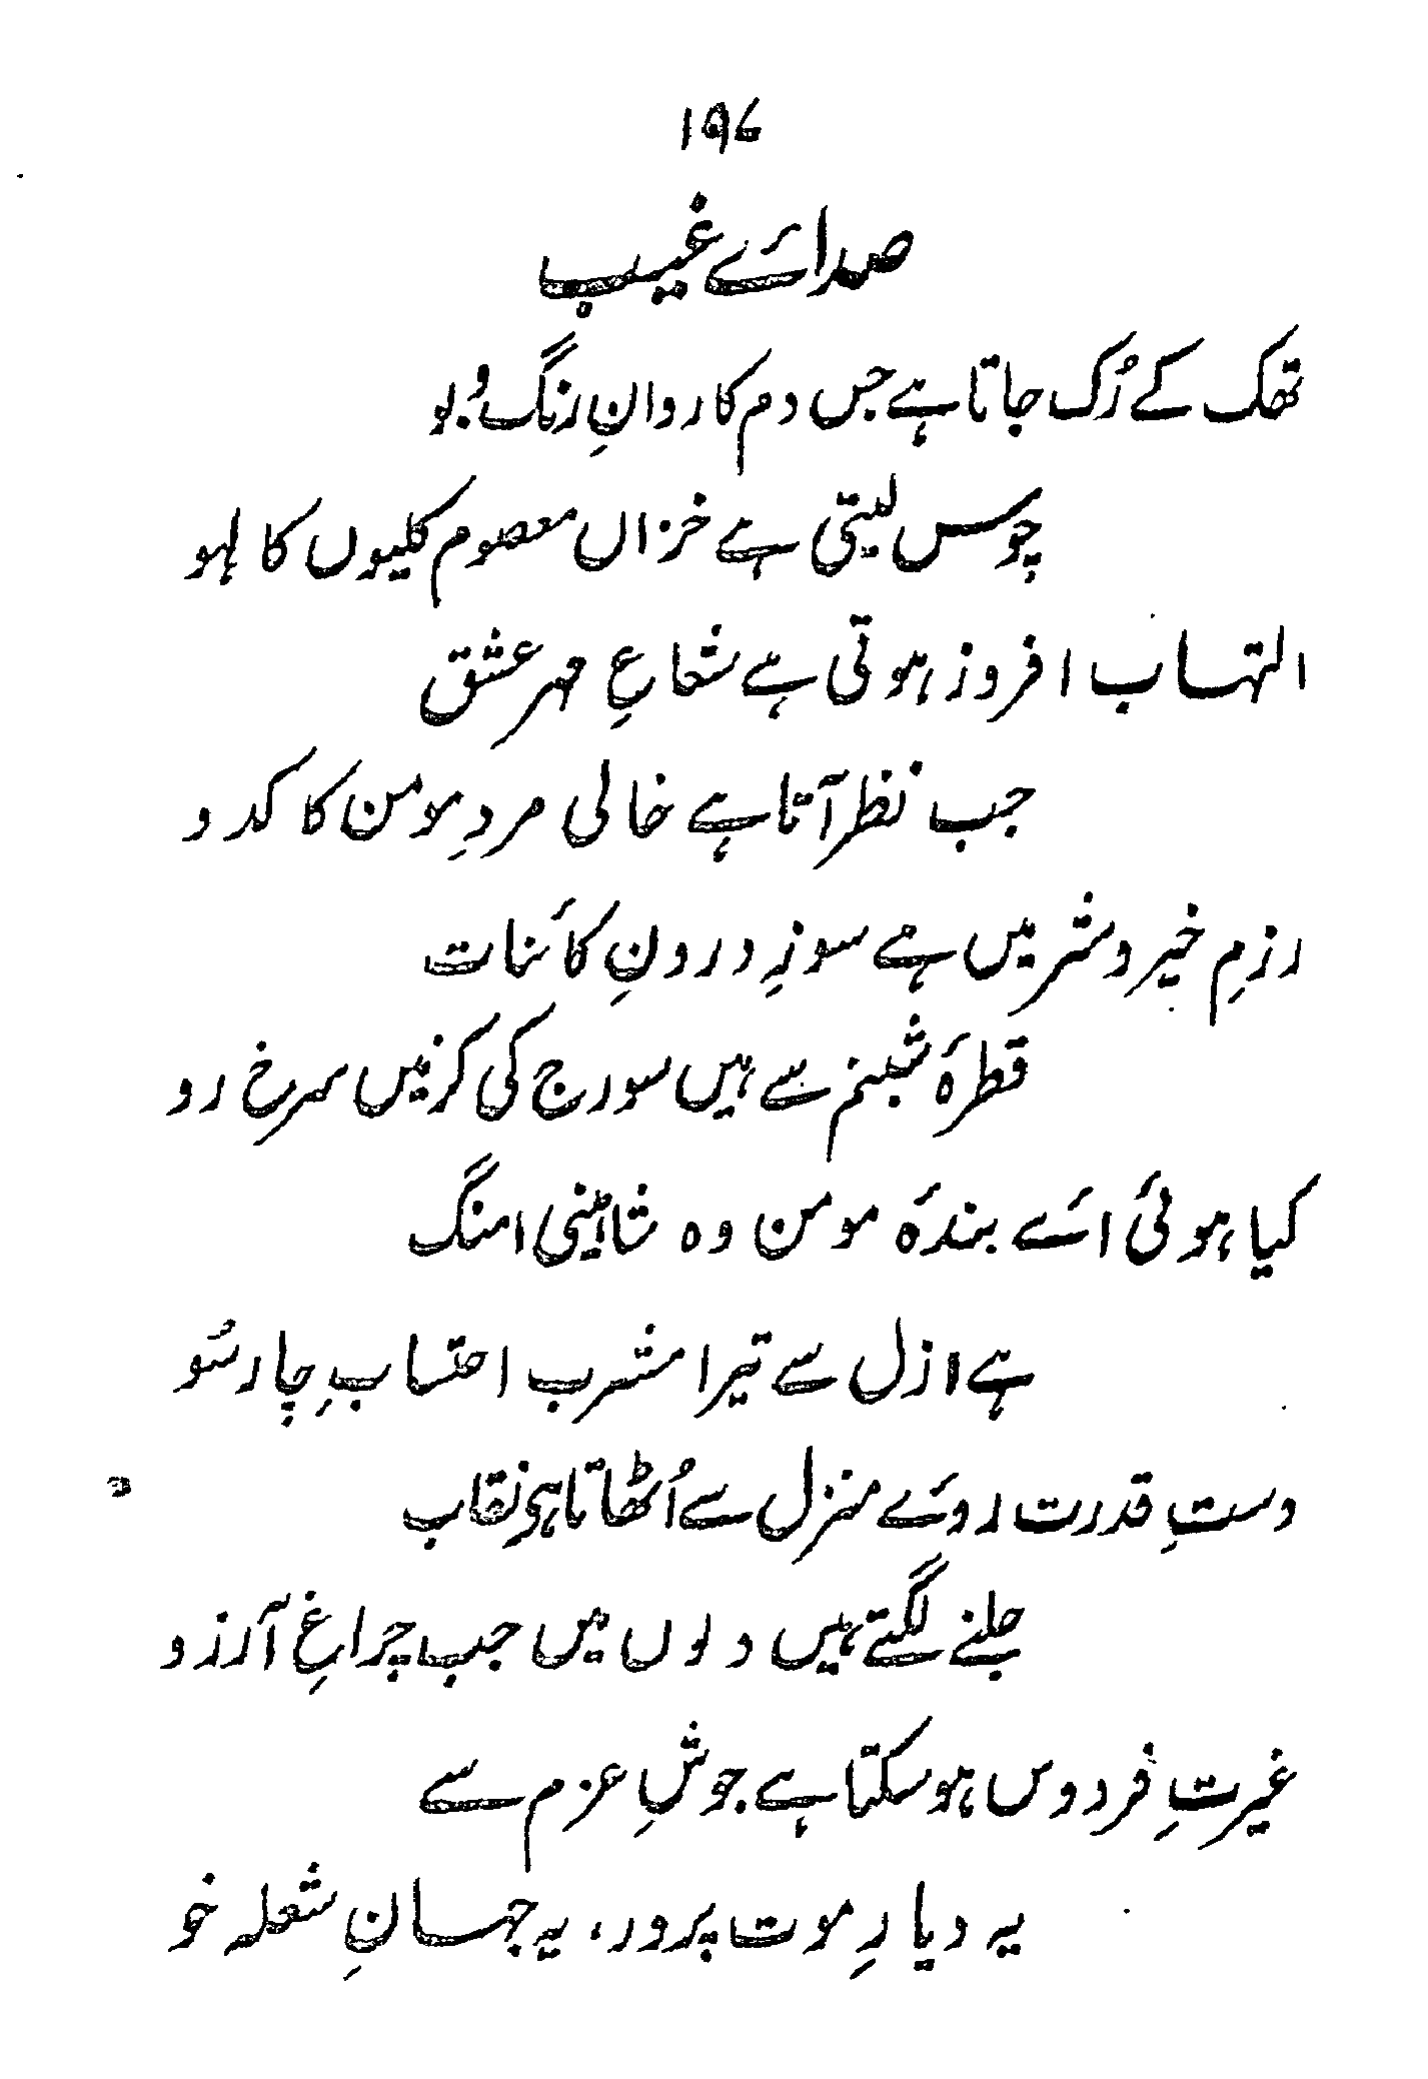 ۱۹۷
صدائے غیب
تھک کے رُک جاتا ہے جس دم کاروانِ رنگ و بُو
چوس لیتی ہے خزاں معصوم کلیوں کا لہو
التہاب افروز ہوتی ہے شعاعِ مہر عشق
جب نظر آتا ہے خالی مردِ مومن کا کدو
رزمِ خیر و شر میں ہے سوزِ درونِ کائنات
قطرۂ شبنم سے ہیں سورج کی کرنیں سرخ رو
کیا ہوئی اے بندۂ مومن وہ شاہینی امنگ
ہے ازل سے تیرا مشرب احتسابِ چار سُو
دستِ قدرت روئے منزل سے اُٹھاتا ہے نقاب
جلنے لگتے ہیں دلوں میں جب چراغِ آرزو
غیرتِ فردوس ہو سکتا ہے جوشِ عزم سے
یہ دیارِ موت پرور، یہ جہانِ شعلہ خو